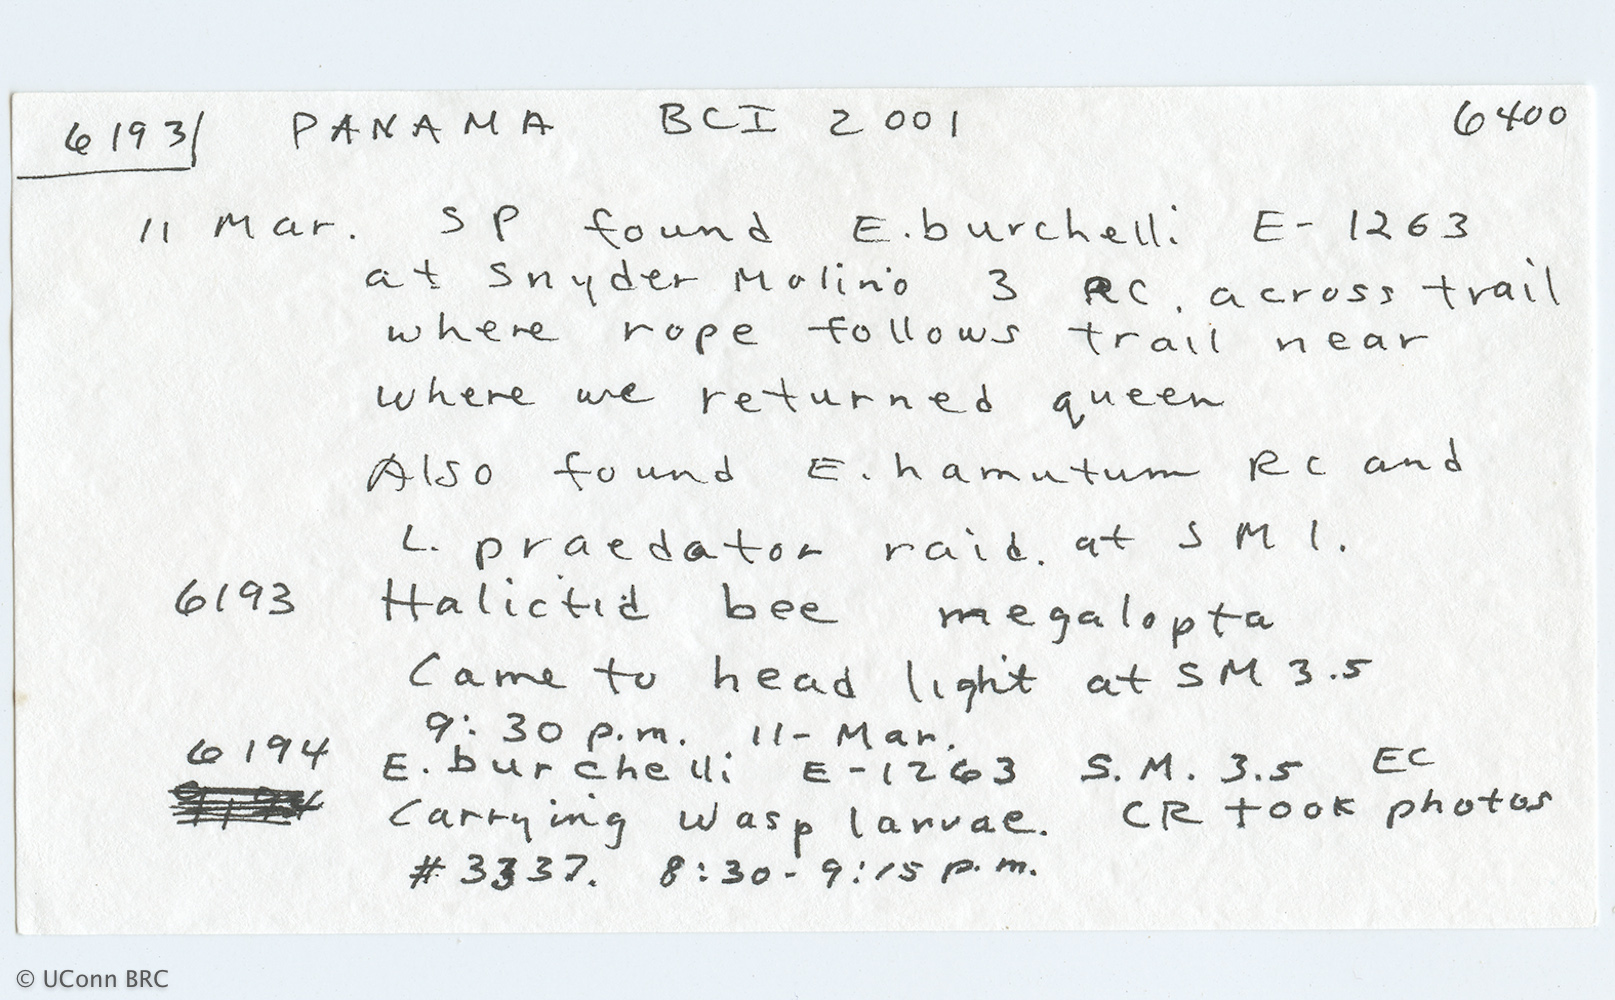 6193 PANAMA BCI 2001 6400
11 Mar. SP found E. burchelli E-1263
at Snyder Molino 3 RC. across trail
where rope follows trail near
where we returned queen
Also found E. hamutum RC and
L. praedator raid. at SM 1.
6193 Halictid bee megalopta
Came to head light at SM 3.5
9:30 p.m. 11-Mar.
6194 E. burchelli E-1263 S.M. 3.5 EC
Carrying wasp larvae. CR took photos
#3337. 8:30-9:15 p.m.
© UConn BRC